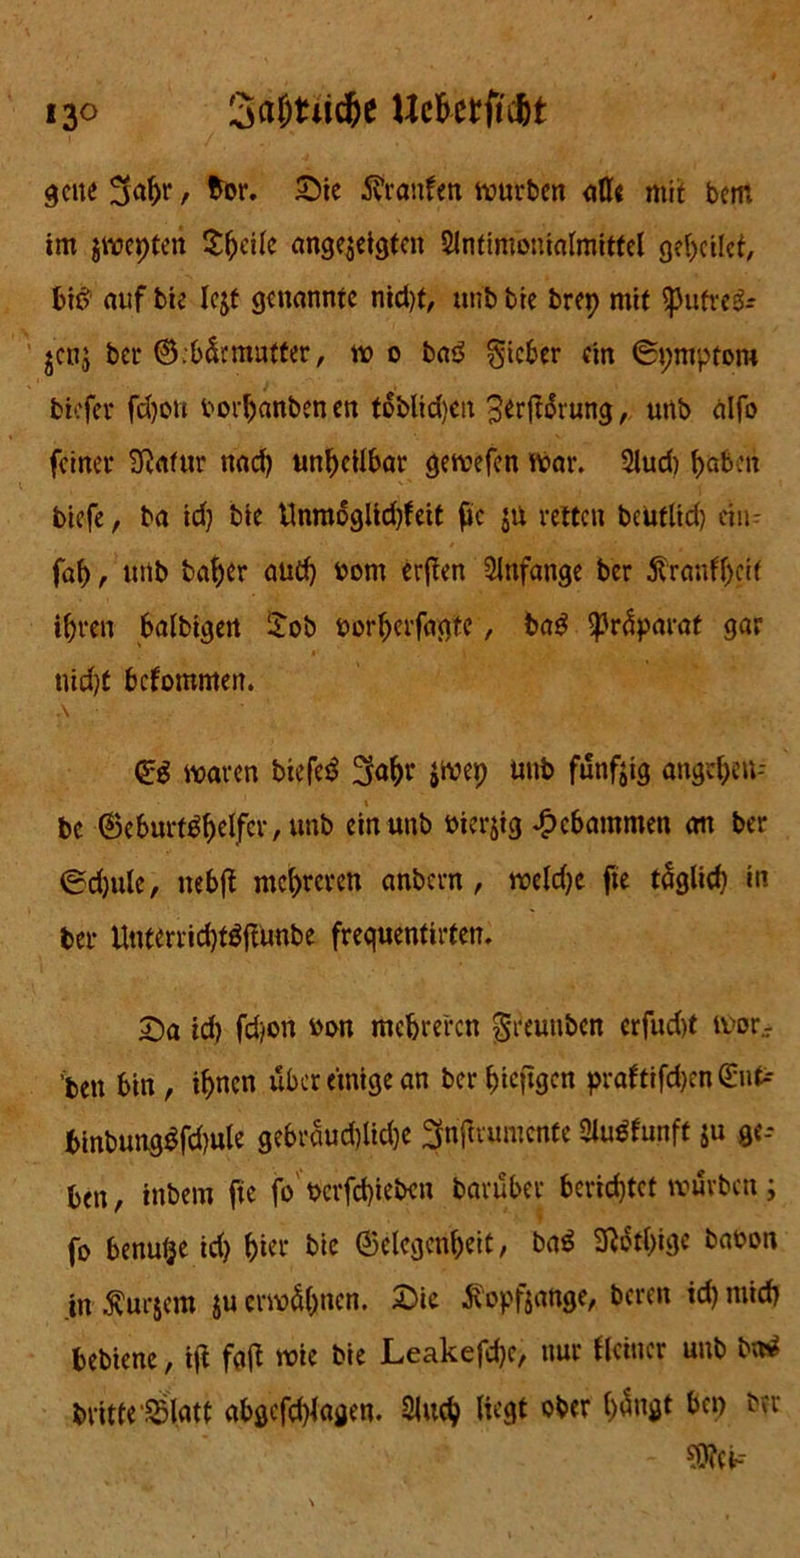 130 Jahrliche Uebersicht
gene Jahr, vor. Die Kranken wurden alle mit dem
im zweyten Theile angezeigten Antimonialmittel geheilet,
bis auf die lezt genannte nicht, und die drey mit Putres-
zenz der Gebärmutter, w o das Fieber ein Symptom
dieser schon vorhandenen tödlichen Zerstörung, und also
seiner Natur nach unheilbar gewesen war. Auch haben
diese, da ich die Unmöglichkeit sie zu retten deutlich ein-
sah, und daher auch vom ersten Anfange der Krankheit
ihren baldigen Tod vorhersagte, das Präparat gar
nicht bekommen.
Es waren dieses Jahr zwey und fünfzig angehen-
de Geburtshelfer, und ein und vierzig Hebammen an der
Schule, nebst mehreren andern, welche sie täglich in
der Unterrichtsstunde frequentirten.
Da ich schon von mehreren Freunden ersucht wor-
den bin, ihnen über einige an der hiesigen praktischen Ent-
bindungsschule gebräuchliche Instrumente Auskunft zu ge-
ben, indem sie so verschieden darüber berichtet würden;
so benutze ich hier die Gelegenheit, das Nöthige davon
in Kurzem zu erwähnen. Die Kopfzange, deren ich mich
bediene, ist fast wie die Leakesche, nur kleiner und das
dritte Blatt abgeschlagen. Auch liegt oder hängt bey der
Mei-